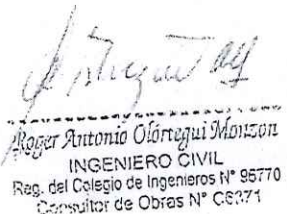 Roger Antonio Olórtegui Monzon
INGENIERO CIVIL
Reg. del Colegio de Ingenieros N° 95770
Consultor de Obras N°